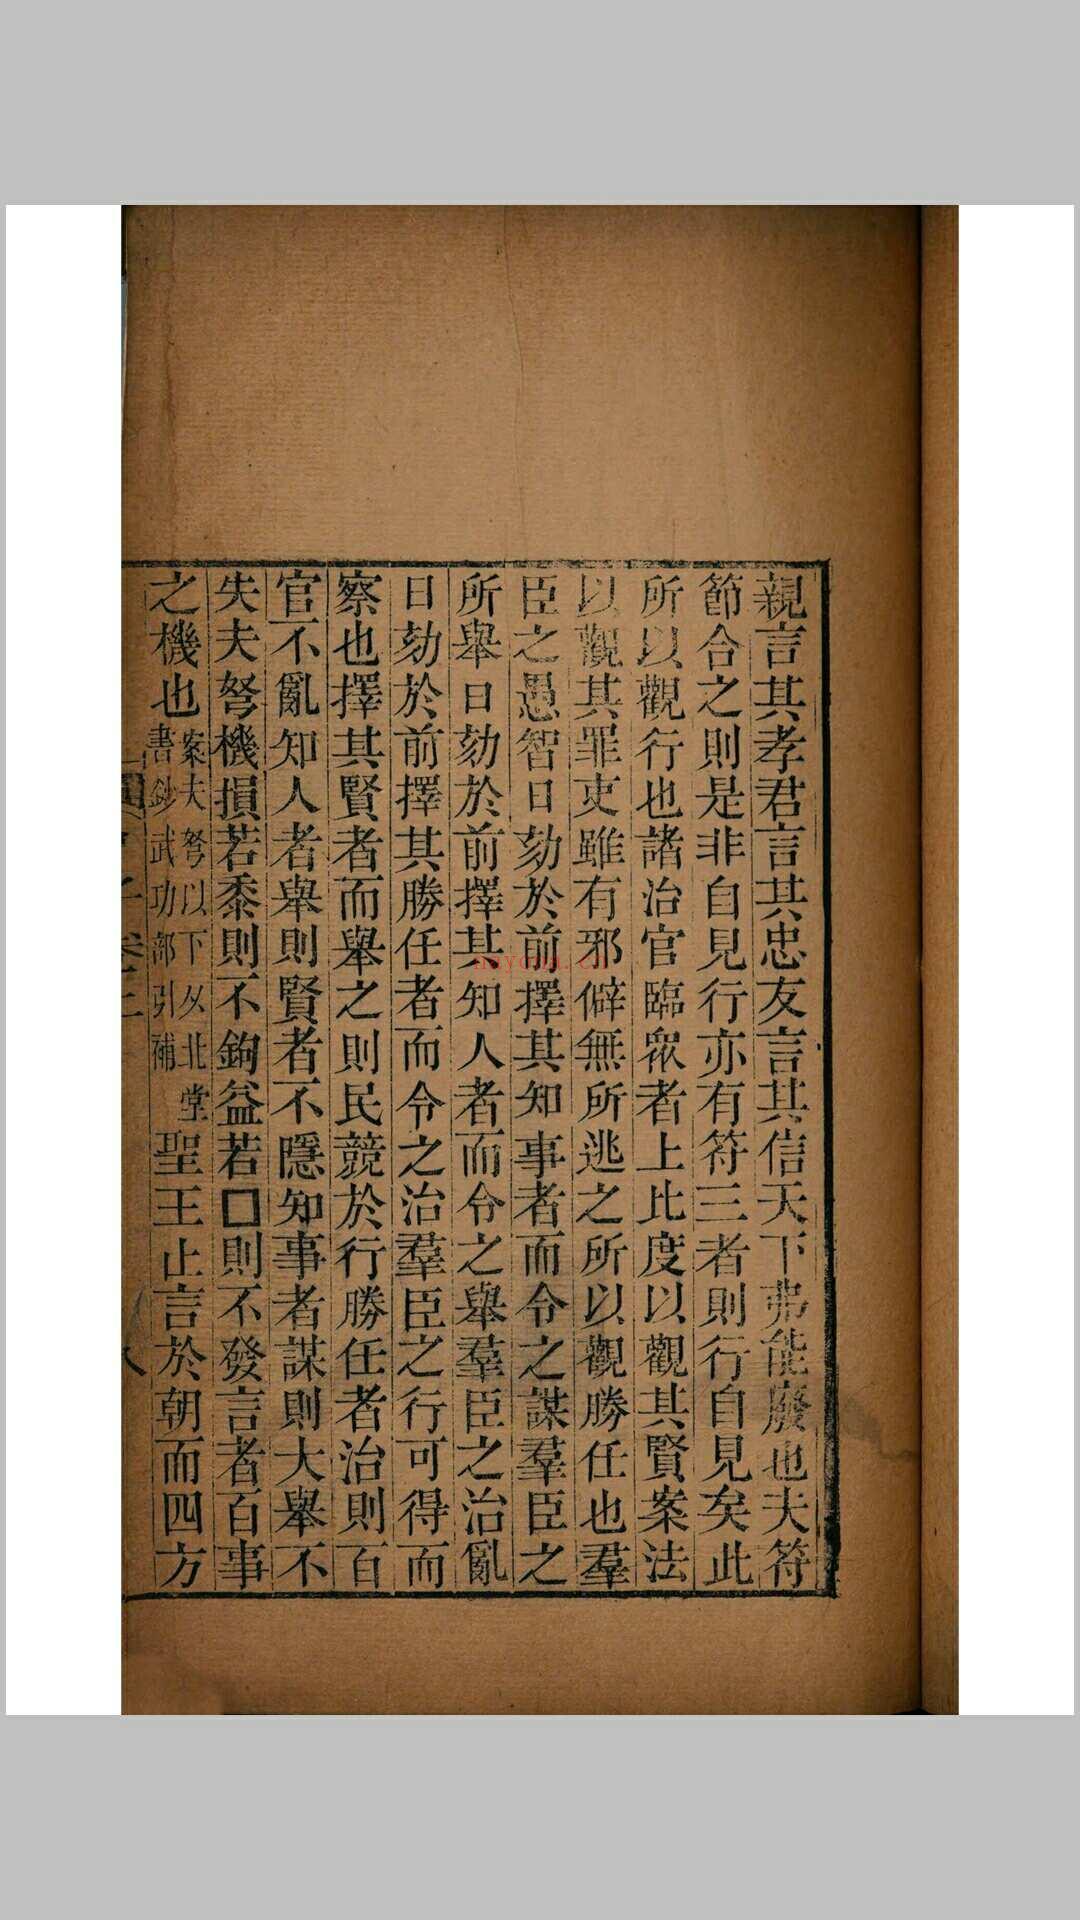 親言其孝君言其忠友言其信天下弗能廢也夫符
節合之則是非自見行亦有符三者則行自見矣此
所以觀行也諸治官臨眾者上比度以觀其賢案法
以觀其罪吏雖有邪僻無所逃之所以觀勝任也羣
臣之愚智日効於前擇其知事者而令之謀羣臣之
所舉日効於前擇其知人者而令之舉羣臣之治亂
日効於前擇其勝任者而令之治羣臣之行可得而
察也擇其賢者而舉之則民競於行勝任者治則百
官不亂知人者舉則賢者不隱知事者謀則大舉不
失夫弩機損若黍則不鉤益若□則不發言者百事
之機也案夫弩以下从北堂書鈔武功部引補聖王止言於朝而四方